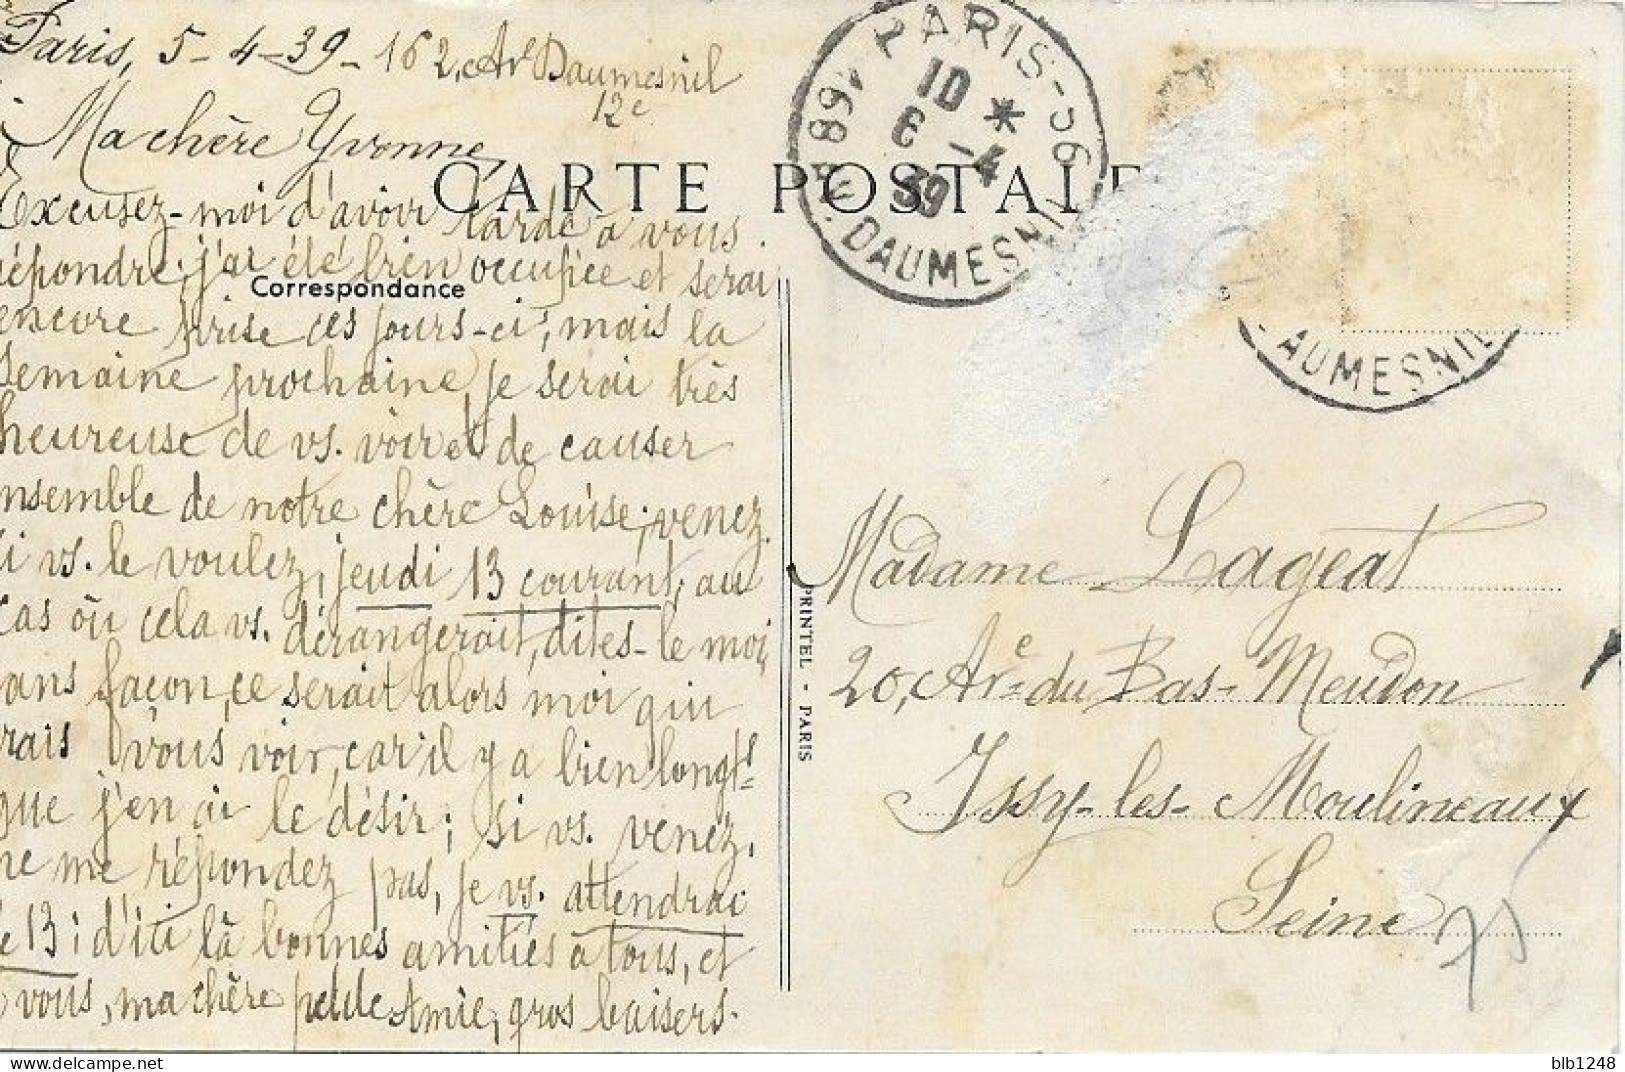 Paris, 5-4-39- 162, Av. Daumesnil
12e
Ma chère Yvonne,
CARTE POSTALE
Excusez-moi d'avoir tardé à vous
répondre; j'ai été bien occupée et serai
Correspondance
encore prise ces jours-ci, mais la
semaine prochaine, je serai très
heureuse de vs. voir et de causer
ensemble de notre chère Louise; venez
si vs. le voulez, jeudi 13 courant, au
cas où cela vs. dérangerait, dites-le moi,
sans façon, ce serait alors moi qui
irais vous voir, car il y a bien longts
que j'en ai le désir; si vs. venez,
ne me répondez pas, je vs. attendrai
le 13; d'ici là bonnes amitiés à tous, et
à vous, ma chère petite Amie, gros baisers.
PARIS-56
10 *
6 -4
39
168 AV. DAUMESNIL
AUMESNIL
Madame Lageat
20, Ave du Bas-Meudon
Issy-les-Moulineaux
Seine
PRINTEL · PARIS
blb1248